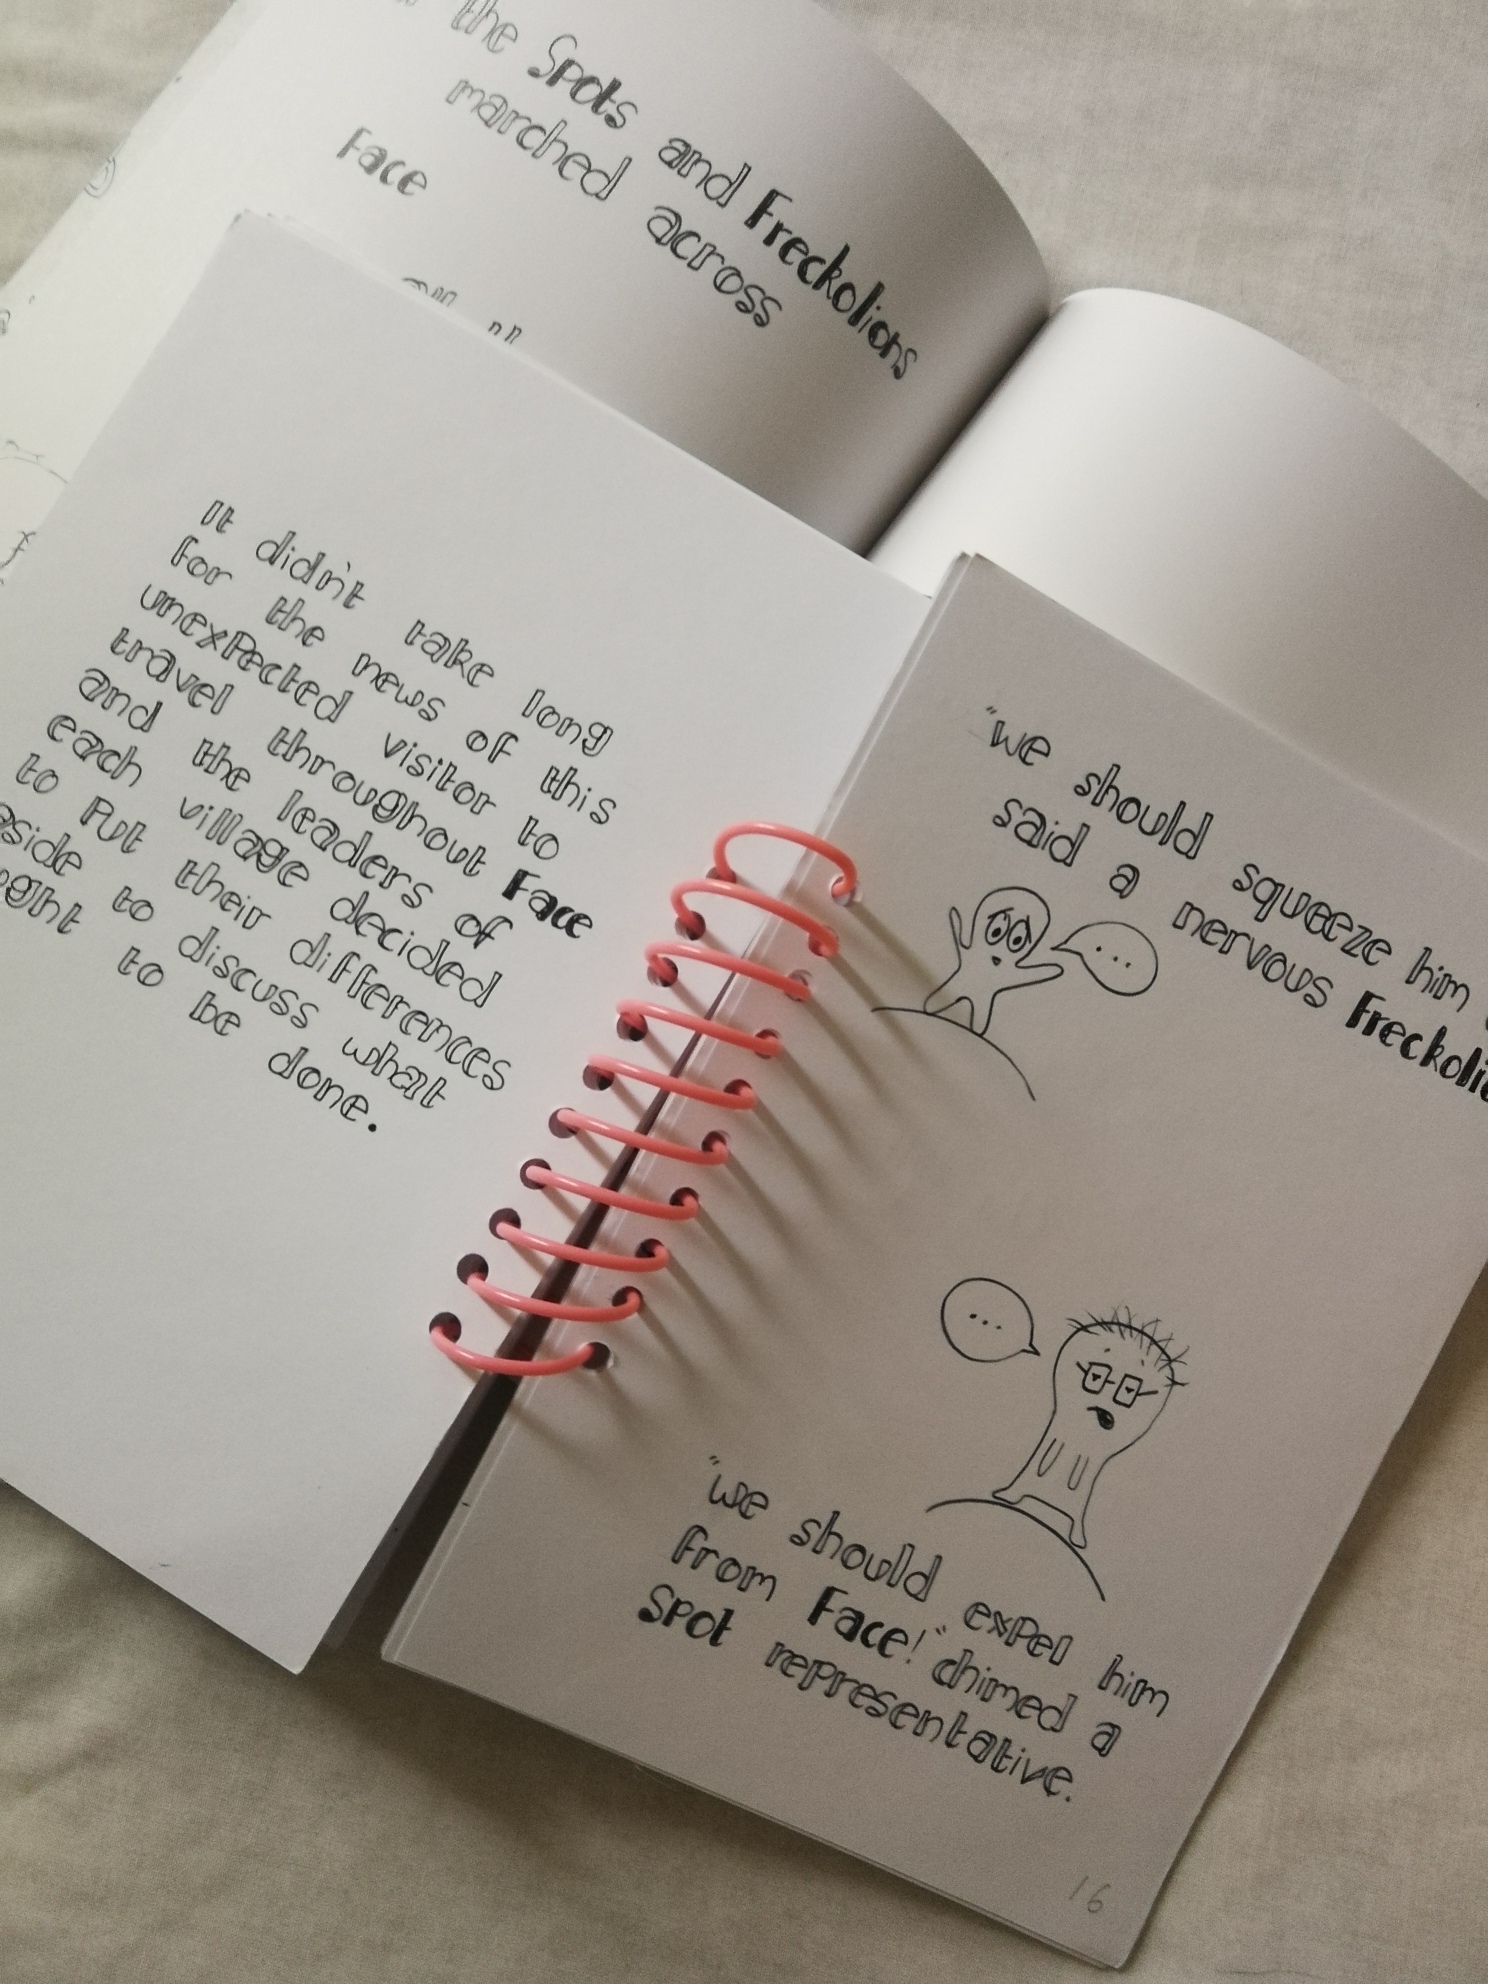 the Spots and Freckolions
marched across
Face
It didn't take long
for the news of this
unexpected visitor to
travel throughout Face
and the leaders of
each village decided
to put their differences
to discuss what
to be done.
"we should squeeze him
said a nervous
...
...
"we should expel him
from Face!" chimed a
Spot representative.
16